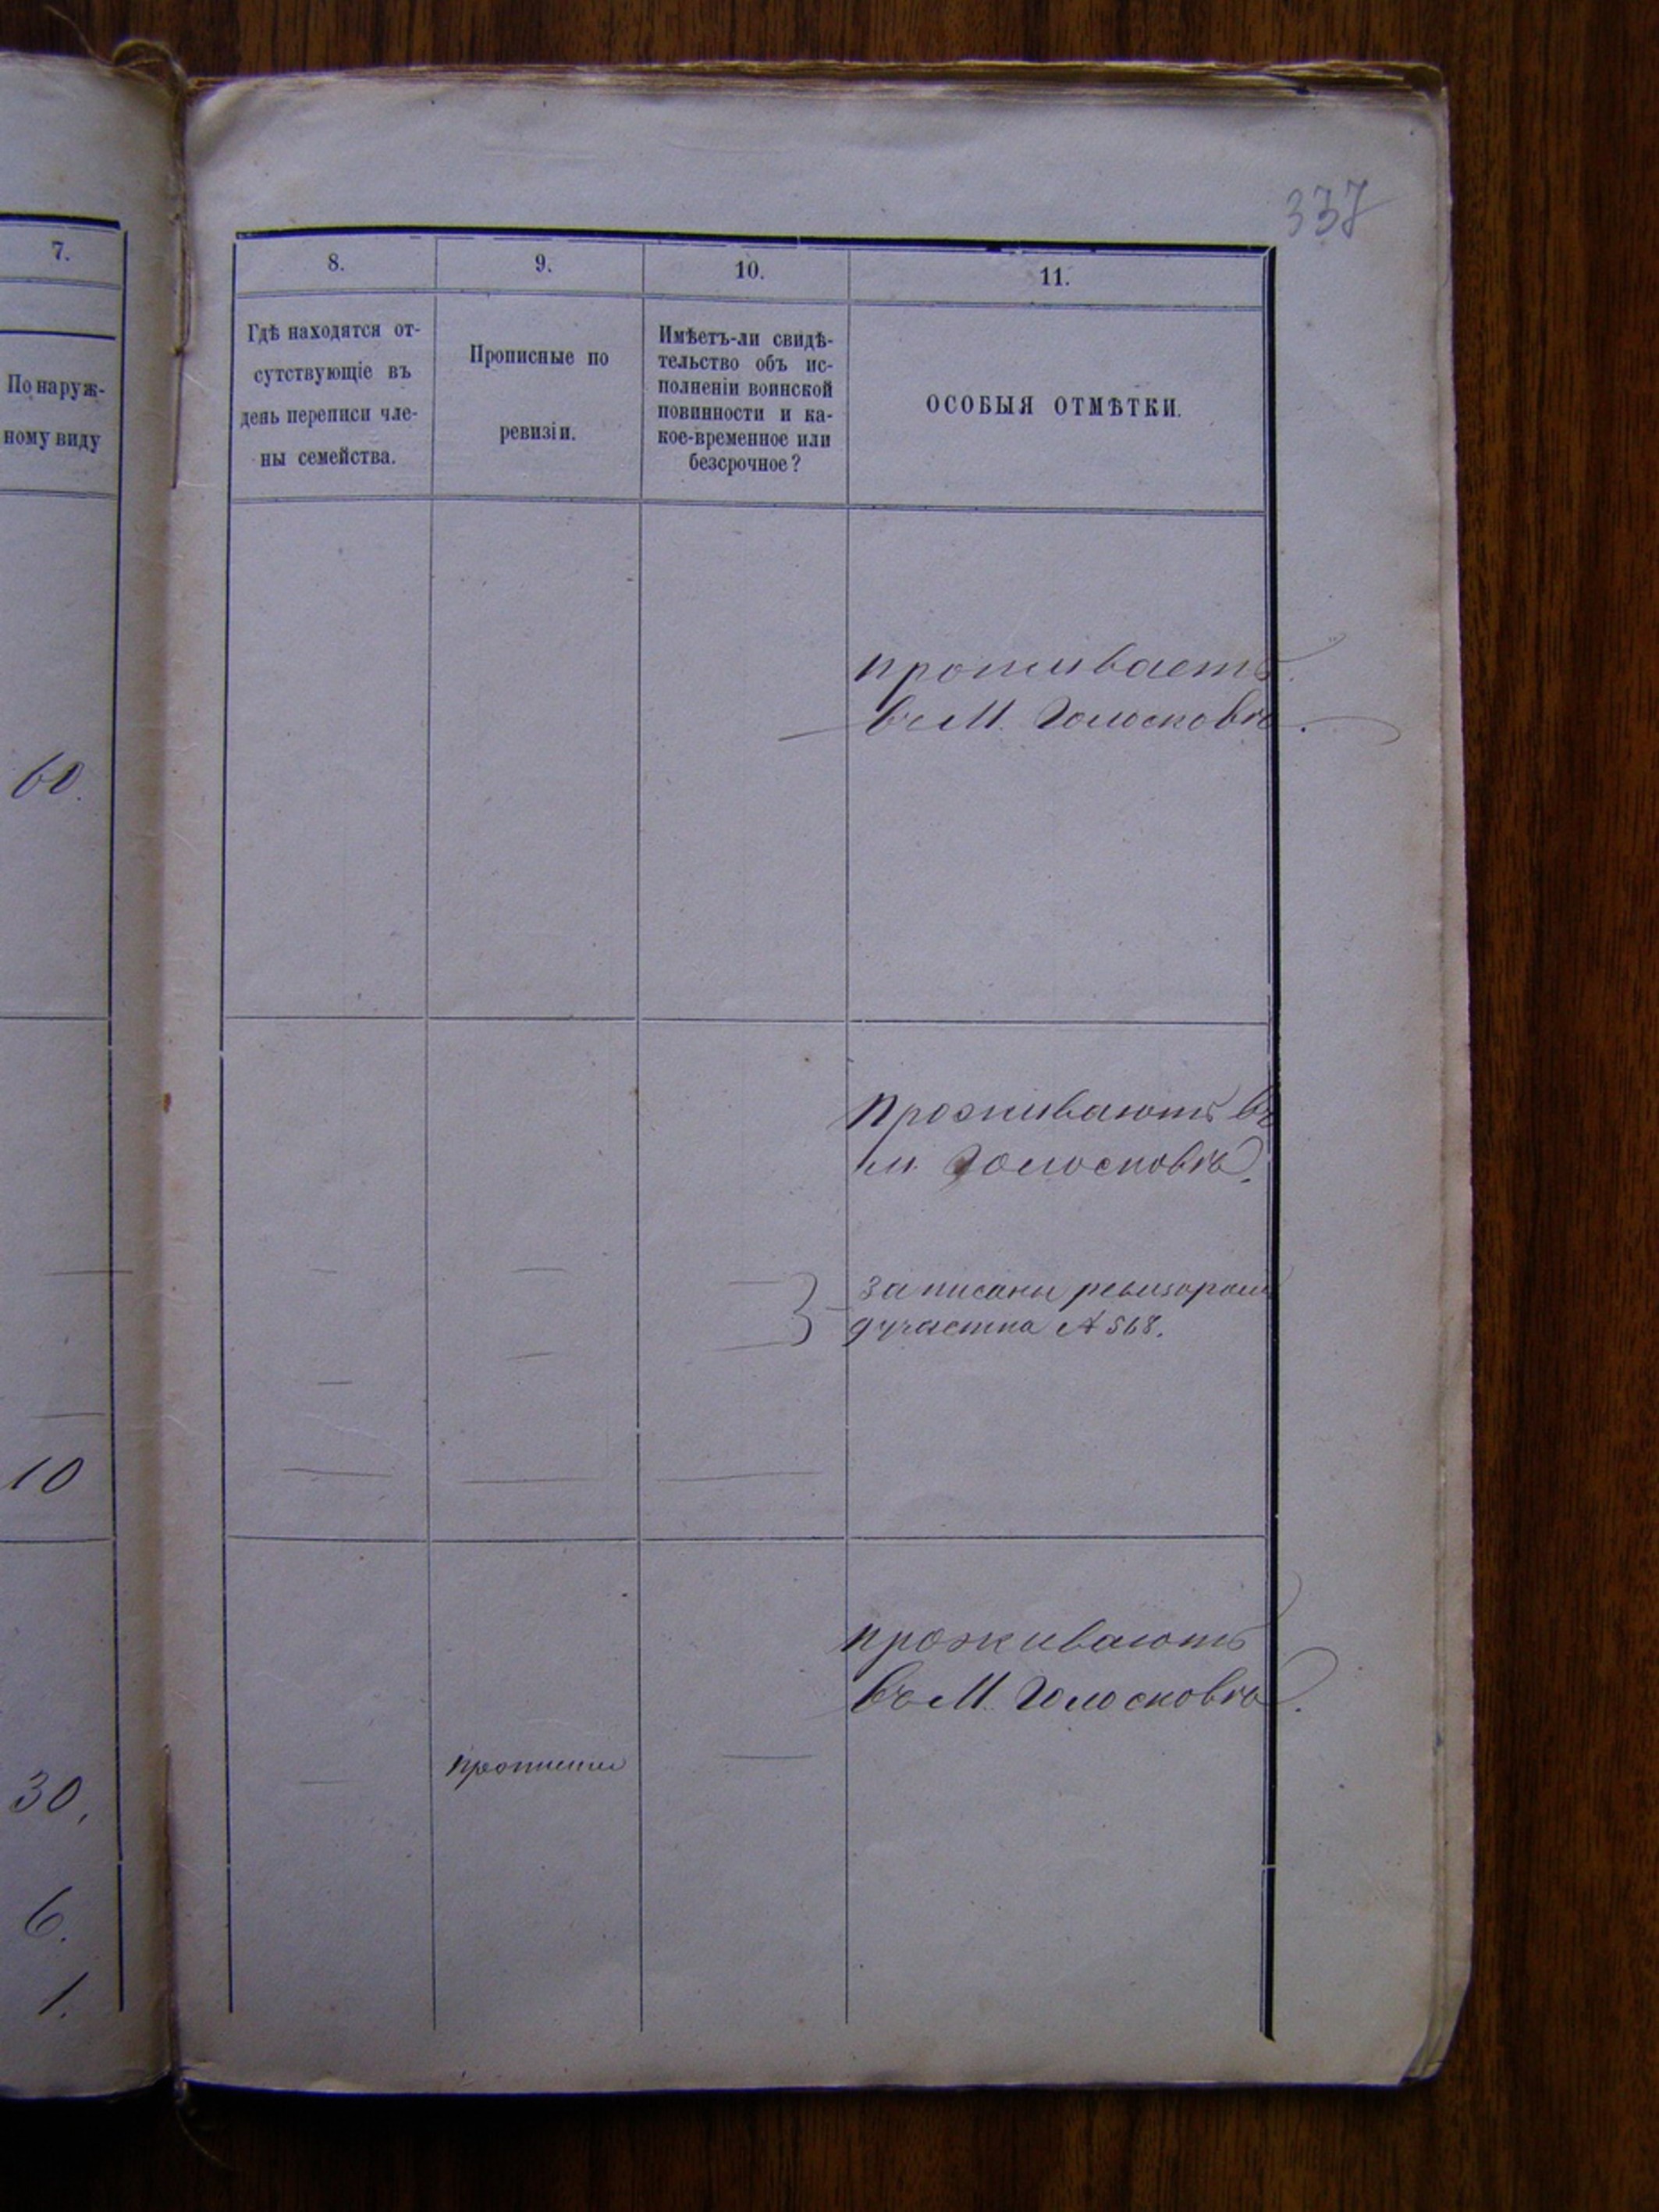 337
7.
8.
9.
10.
11.
По наруж-
ному виду
Гдѣ находятся от-
сутствующіе въ
день переписи чле-
ны семейства.
Прописные по
ревизіи.
Имѣетъ-ли свидѣ-
тельство объ ис-
полненіи воинской
повинности и ка-
кое-временное или
безсрочное?
ОСОБЫЯ ОТМѢТКИ.
проживаетъ
въ М. Голосковѣ.
60.
Проживаютъ въ
м. Голосковѣ.
записаны ревизоромъ
участка 568.
10
проживаютъ
въ М. Голосковѣ.
30.
6.
1.